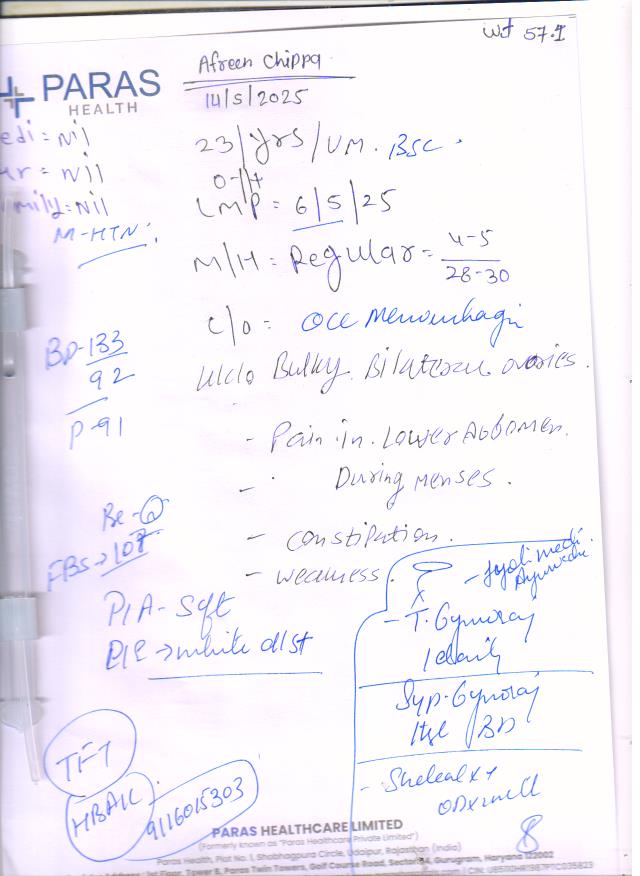 Wt 57.1
Afreen Chippa
PARAS
HEALTH
14/5/2025
edi = Nil
23/Yrs/UM. BSC.
ur = Nil
mily = Nil
LMP = 6/5/25
M-HTN
M/H = Regular = 4-5
28-30
C/O = Occ Menorrhagi
BP-133
92
P-91
Bulky Bilateral ovaries.
- Pain in Lower Abdomen.
- During menses.
- Constipation.
FBS → 107
- weakness.
P/A - Soft
- T. Gynoraj
1 daily
P/E → white dist
Syp. Gynoraj
BD
TFT
HBA1C
9116015303
- Shelcal XT
8
PARAS HEALTHCARE LIMITED
(Formerly known as "Paras Healthcare Private Limited")
Paras Health, Plot No. 1, Shobhagpura Circle, Udaipur, Rajasthan (India)
1st Floor, Tower B, Paras Twin Towers, Golf Course Road, Sector-54, Gurugram, Haryana 122002